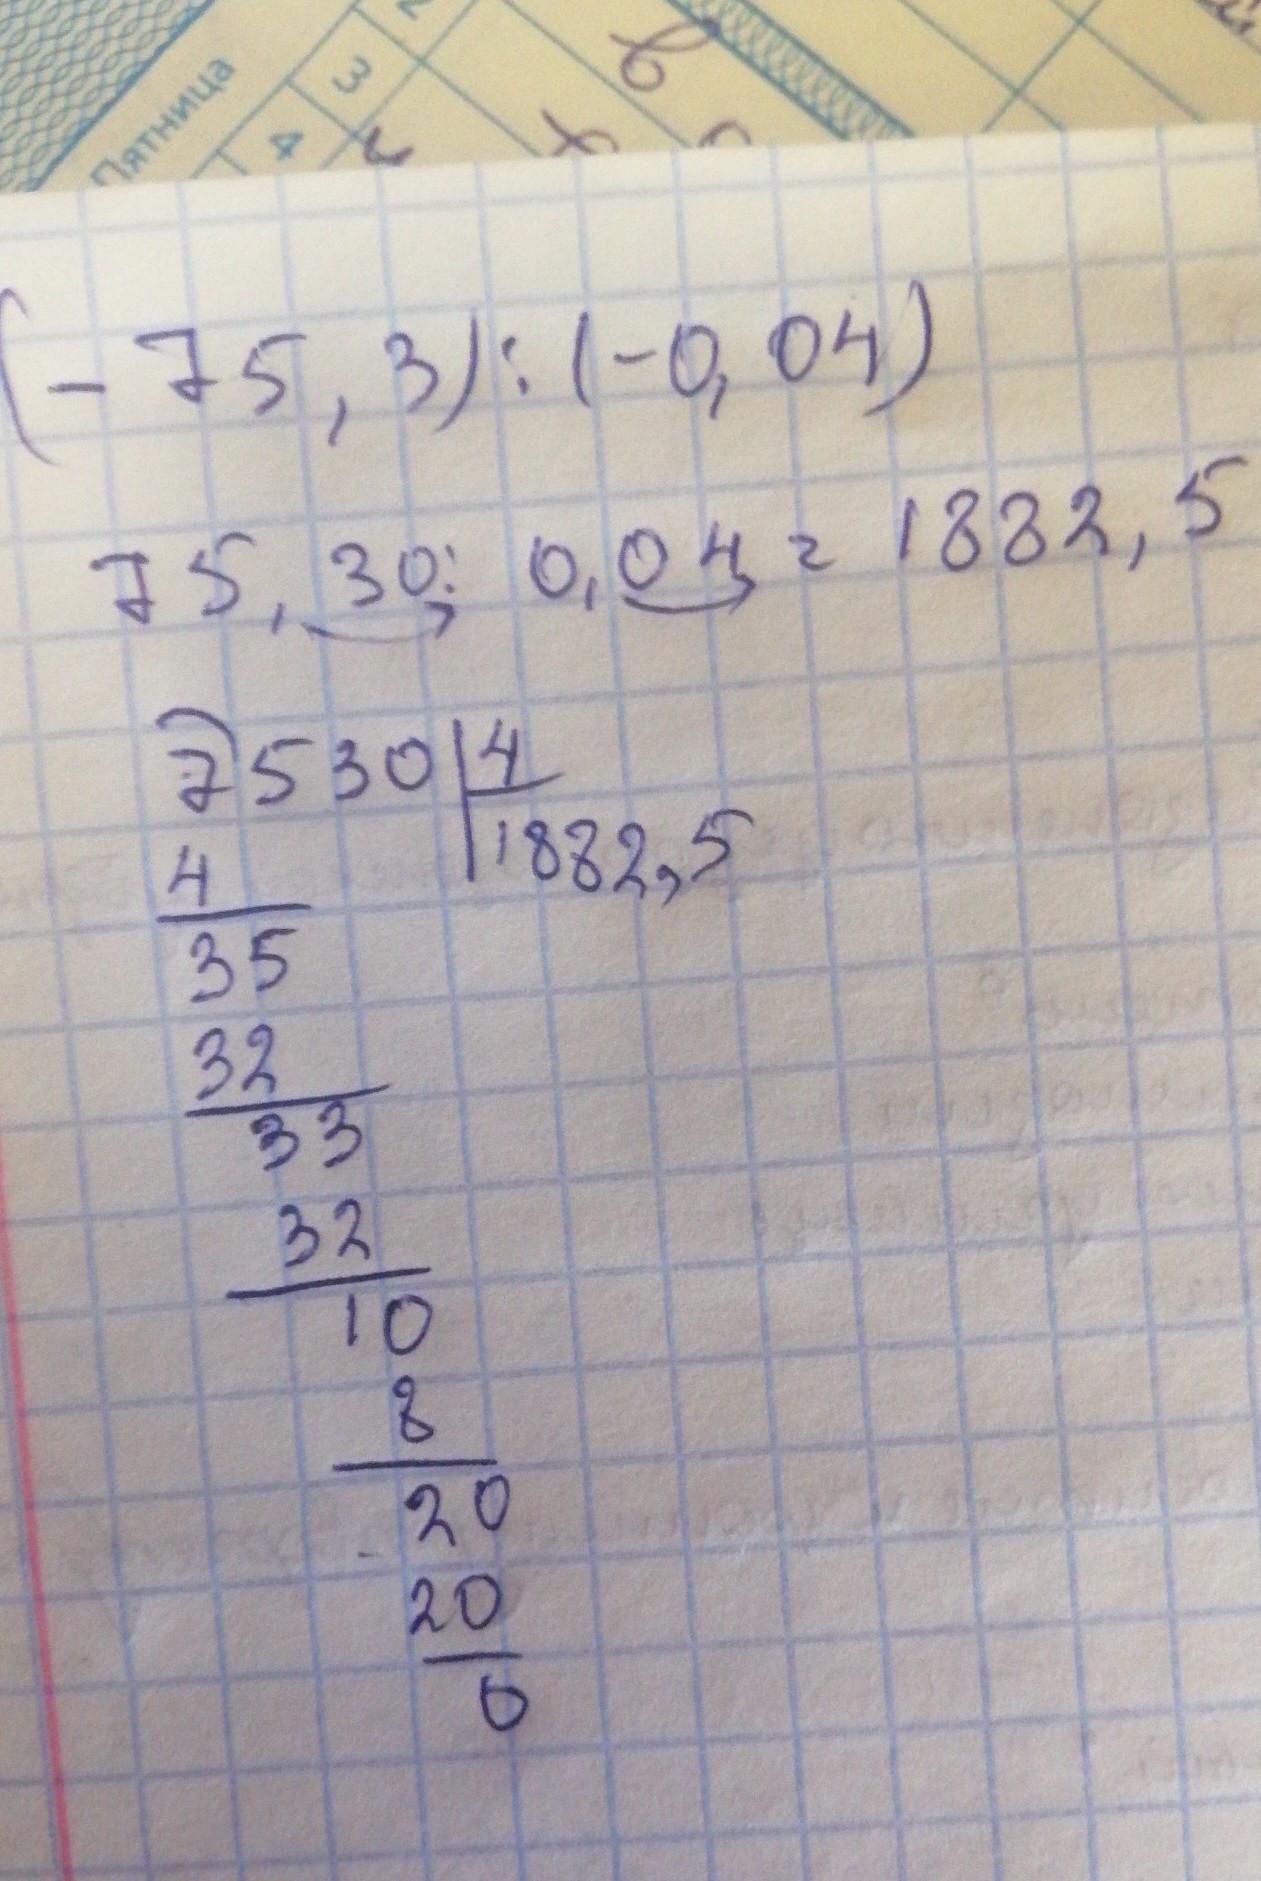 Пятница
2
3
4
в
(-75,3):(-0,04)
75,30:0,04=1882,5
7530|4
4
1882,5
35
32
33
32
10
8
20
20
0